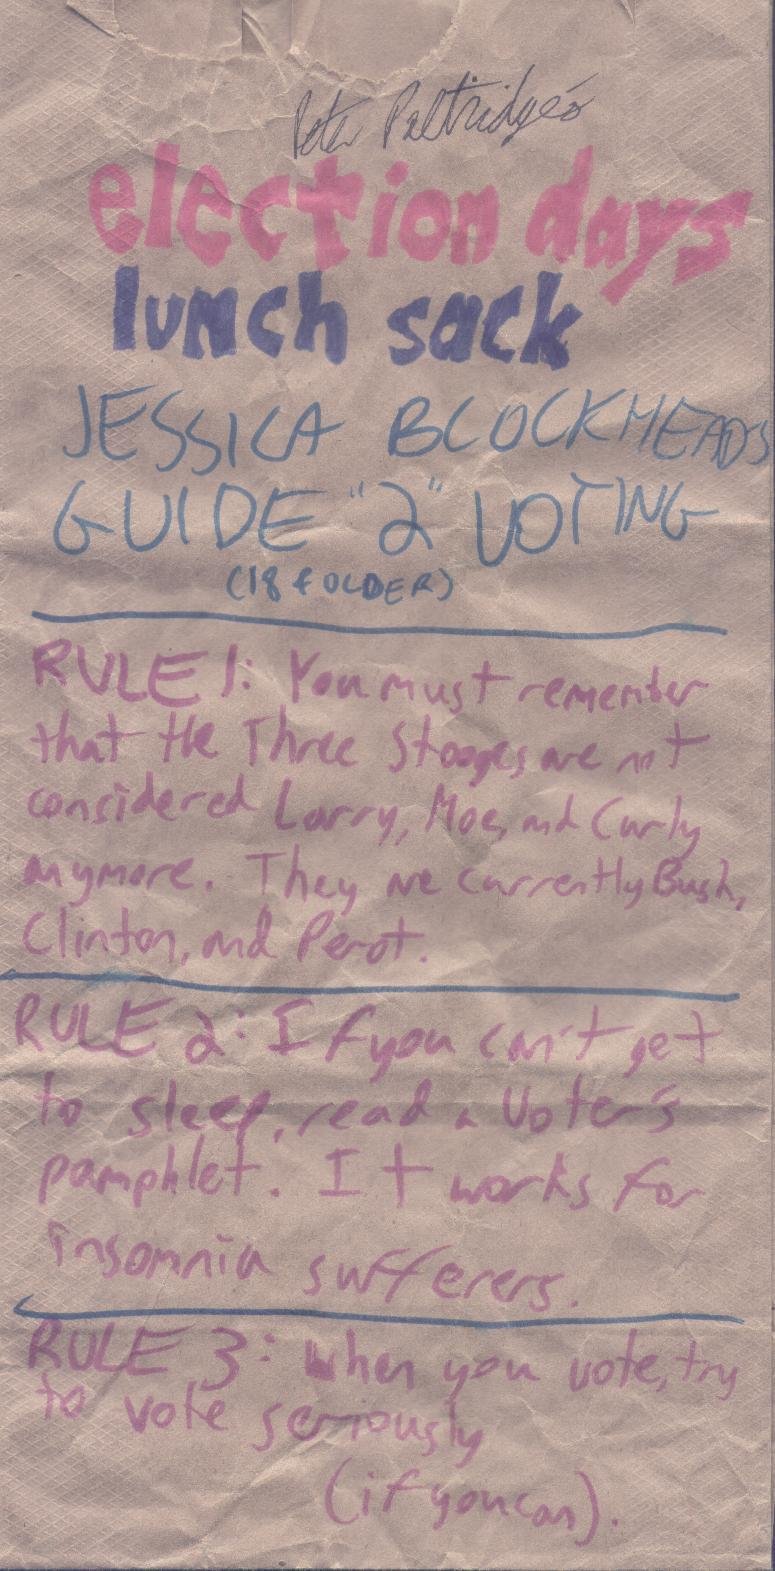 Peter Paltridge's
election days
lunch sack
JESSICA BLOCKHEAD'S
GUIDE "2" VOTING
(18 & OLDER)
RULE 1: You must remember
that the Three Stooges are not
considered Larry, Moe, and Curly
anymore. They are currently Bush,
Clinton, and Perot.
RULE 2: If you can't get
to sleep, read a Voter's
pamphlet. It works for
insomnia sufferers.
RULE 3: When you vote, try
to vote seriously
(if you can).